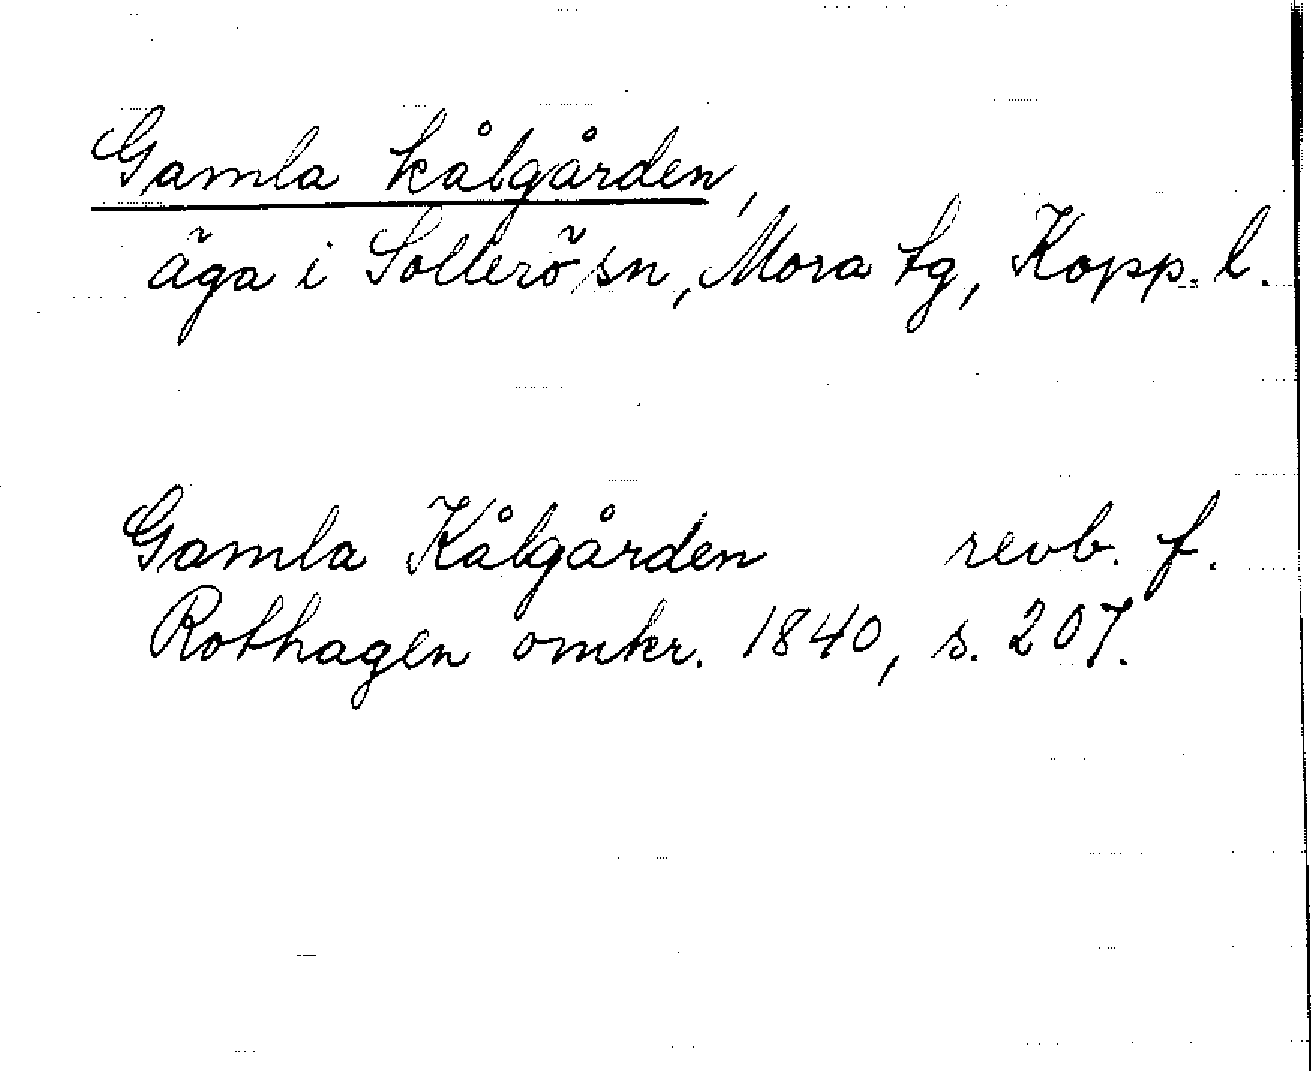 Gamla kålgården,
äga i Sollerö sn, Mora tg, Kopp. l.
Gamla Kålgården revb. f.
Rothagen omkr. 1840, s. 207.